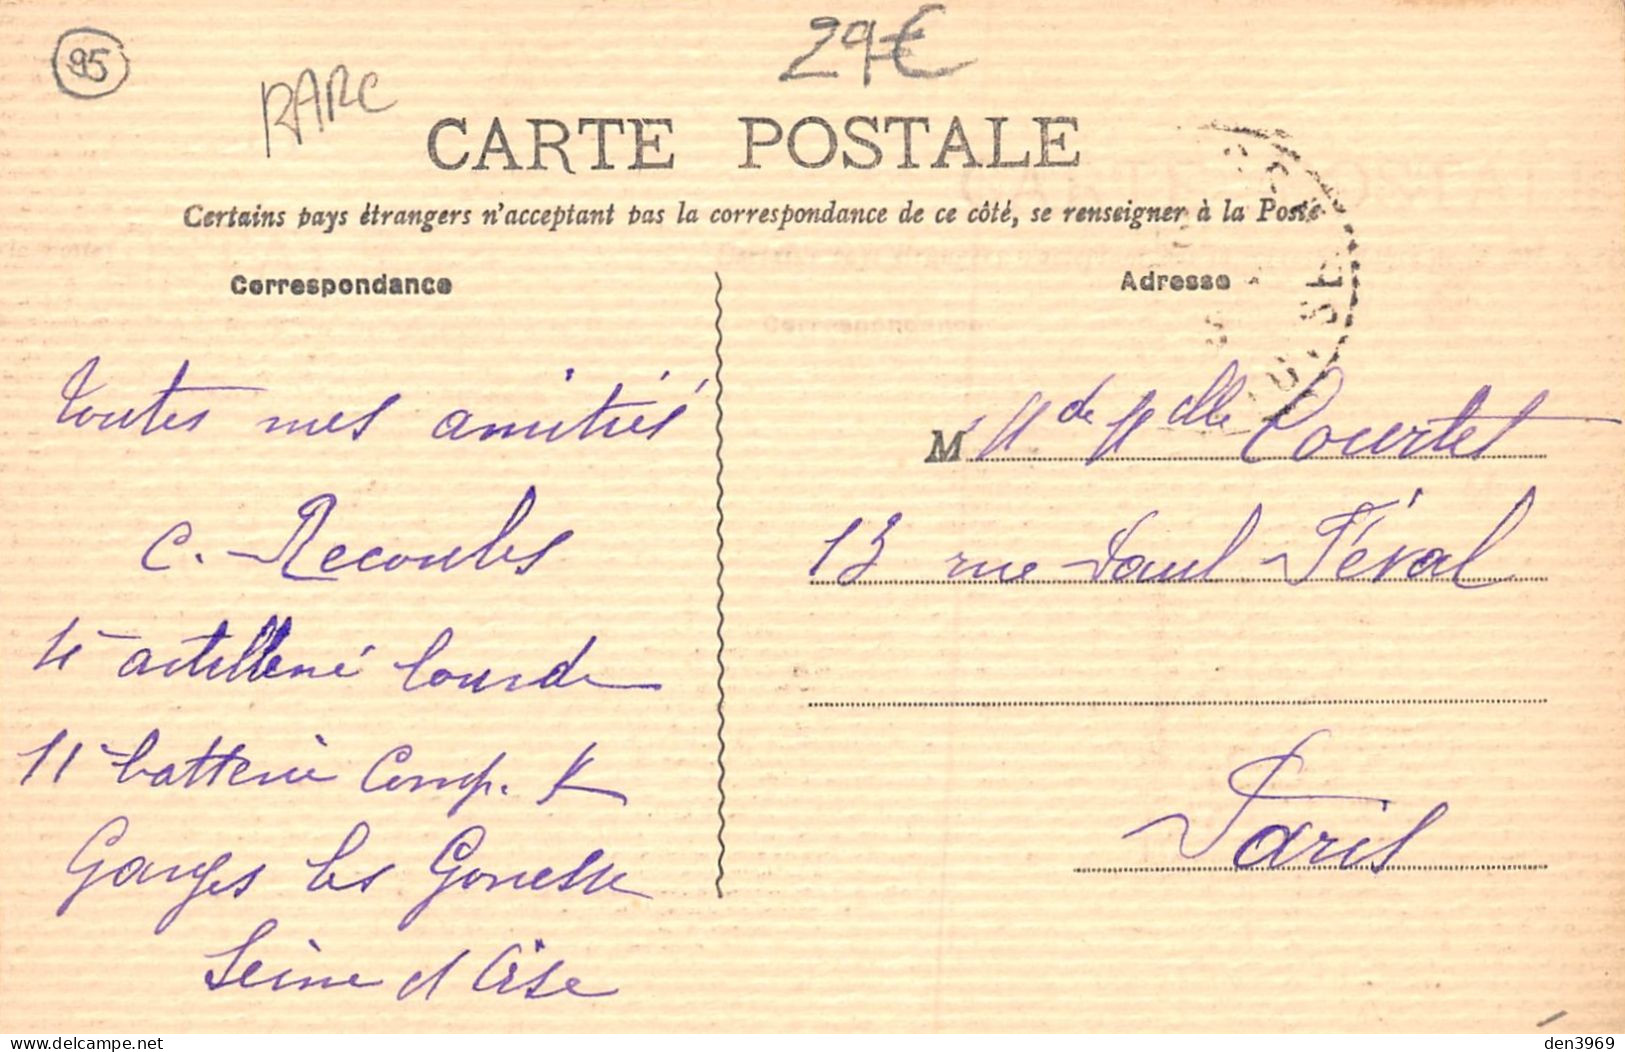 95
RARE
29€
CARTE POSTALE
Certains pays étrangers n'acceptent pas la correspondance de ce côté, se renseigner à la Poste
Correspondance
Toutes mes amitiés
C. Recoules
4e artillerie lourde
11e batterie Comp. K
Garges les Gonesse
Seine et Oise
Adresse
M Mde Melle Courtet
13 rue Paul Féval
Paris
www.delcampe.net
den3969